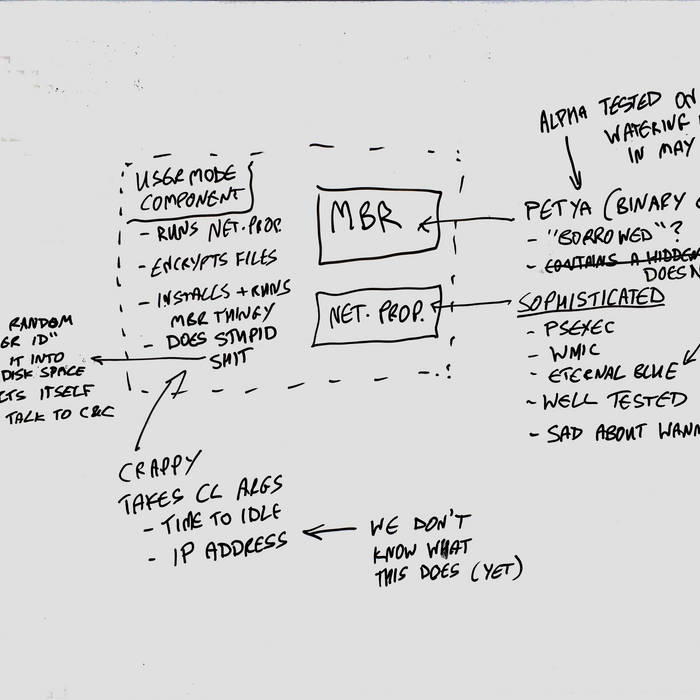 ALPHA TESTED ON
WATERING
IN MAY
USER MODE
COMPONENT
- RUNS NET. PROP.
- ENCRYPTS FILES
- INSTALLS + RUNS
MBR THINGY
- DOES STUPID
SHIT
MBR
NET. PROP.
PETYA (BINARY
- "BORROWED"?
- CONTAINS A HIDDEN
DOESN
SOPHISTICATED
- PSEXEC
- WMIC
- ETERNAL BLUE
- WELL TESTED
- SAD ABOUT WANN
RANDOM
ER ID"
IT INTO
DISK SPACE
CTS ITSELF
TALK TO C&C
CRAPPY
TAKES CL ARGS
- TIME TO IDLE
- IP ADDRESS
WE DON'T
KNOW WHAT
THIS DOES (YET)